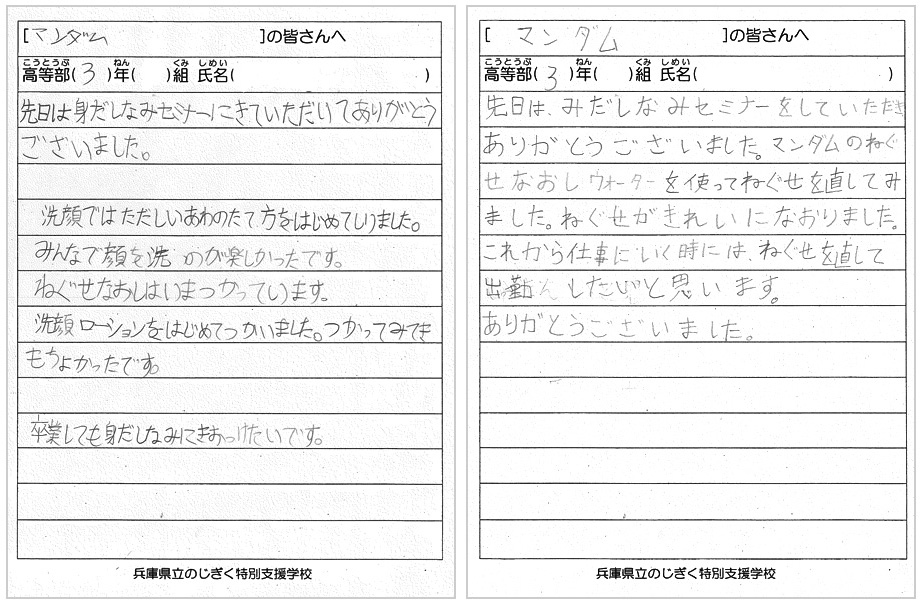 [マンダム ]の皆さんへ
こうとうぶ ねん くみ しめい
高等部(3)年( )組 氏名( )
先日は身だしなみセミナーにきていただいてありがとう
ございました。
洗顔ではただしいあわのたて方をはじめてしりました。
みんなで顔を洗うのが楽しかったです。
ねぐせなおしはいまつかっています。
洗顔ローションをはじめてつかいました。つかってみてき
もちよかったです。
卒業しても身だしなみにきおつけたいです。
兵庫県立のじぎく特別支援学校
[ マンダム ]の皆さんへ
こうとうぶ ねん くみ しめい
高等部(3)年( )組 氏名( )
先日は、みだしなみセミナーをしていただき
ありがとうございました。マンダムのねぐ
せなおしウォーターを使ってねぐせを直してみ
ました。ねぐせがきれいになおりました。
これから仕事にいく時には、ねぐせを直して
出勤 したいと思います。
ありがとうございました。
兵庫県立のじぎく特別支援学校